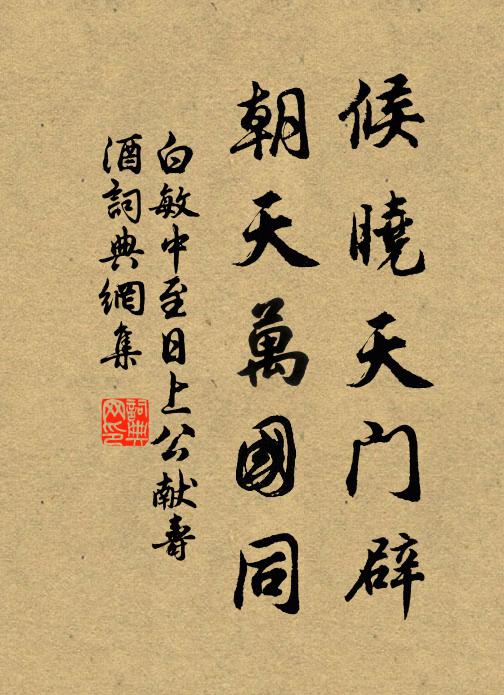 候曉天门辟
朝天萬國同
白敏中至日上公献壽
酒詞典網集
詞典
网印